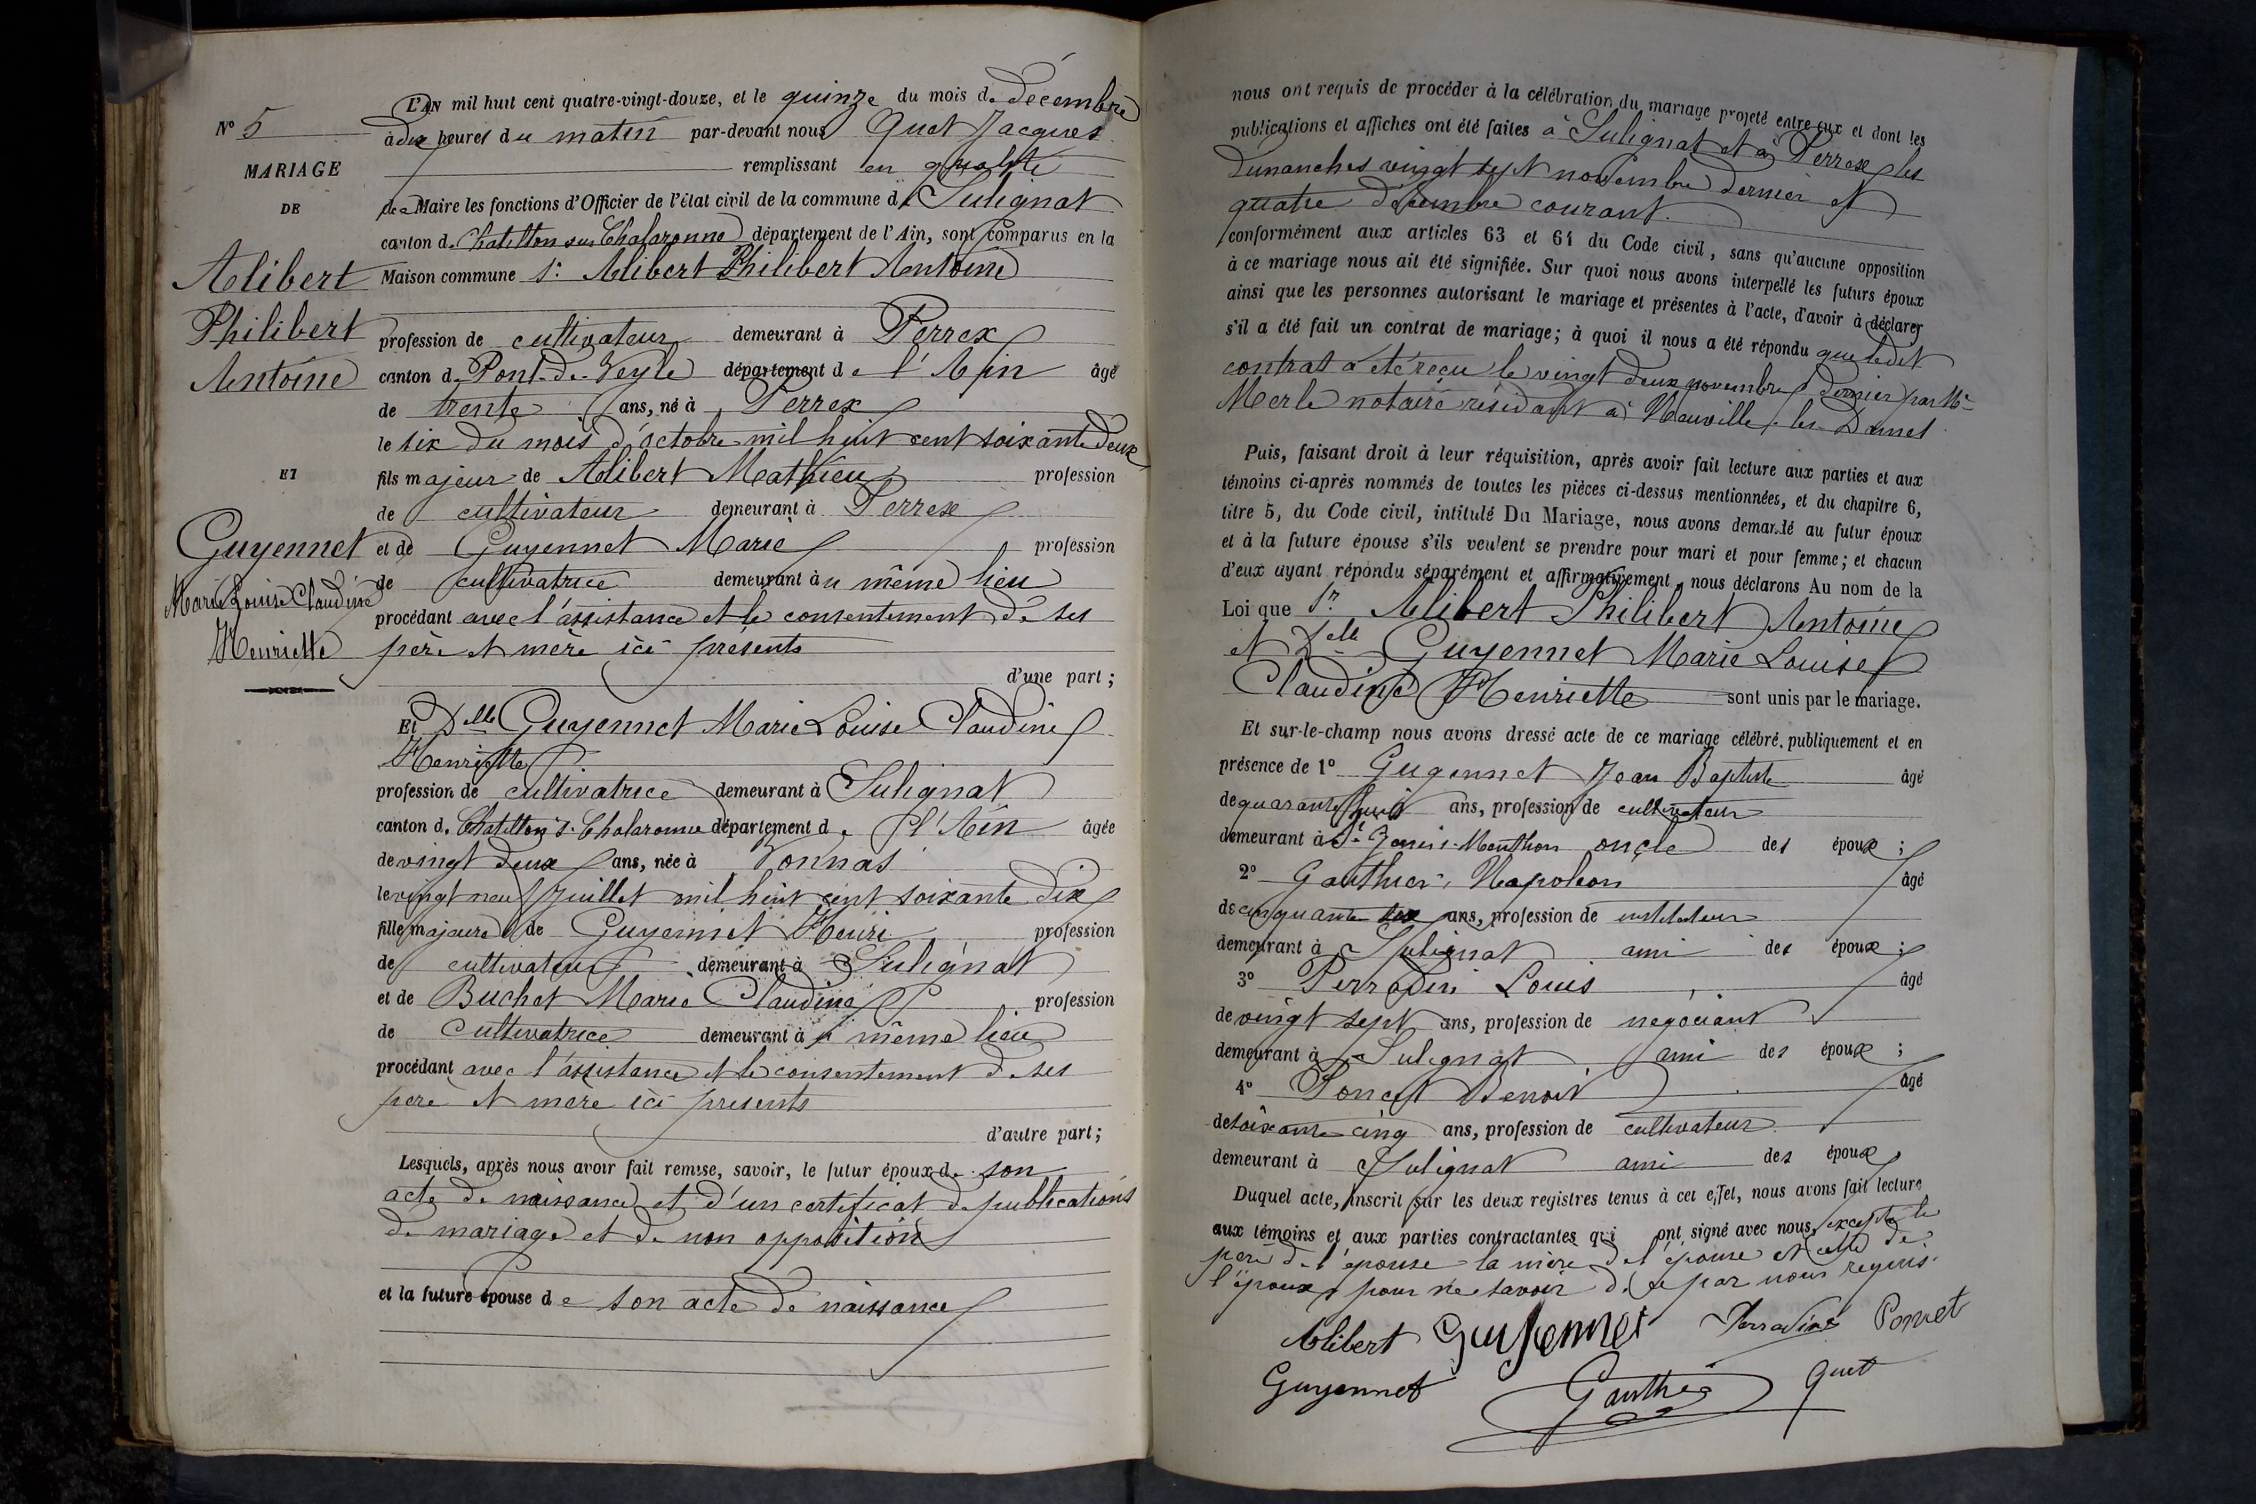 N° 5
MARIAGE
DE
Alibert
Philibert
Antoine
ET
Guyennet
Marie Louise Claudine
Henriette
L'AN mil huit cent quatre-vingt-douze, et le quinze du mois de décembre
à dix heures du matin par-devant nous Quet Jacques
remplissant en qualité
de Maire les fonctions d'Officier de l'état civil de la commune de Sulignat
canton de Chatillon sur Chalaronne département de l'Ain, sont comparus en la
Maison commune 1° Alibert Philibert Antoine
profession de cultivateur demeurant à Perrex
canton de Pont-de-Veyle département de l'Ain âgé
de trente ans, né à Perrex
le six du mois d'octobre mil huit cent soixante deux
fils majeur de Alibert Mathieu profession
de cultivateur demeurant à Perrex
et de Guyennet Marie profession
de cultivatrice demeurant au même lieu
procédant avec l'assistance et le consentement de ses
père et mère ici présents
d'une part ;
Et Delle Guyennet Marie Louise Claudine
Henriette
profession de cultivatrice demeurant à Sulignat
canton de Chatillon s. Chalaronne département de l'Ain âgée
de vingt deux ans, née à Vonnas
le vingt neuf Juillet mil huit cent soixante dix
fille majeure de Guyennet Henri profession
de cultivateur demeurant à Sulignat
et de Buchet Marie Claudine profession
de cultivatrice demeurant à même lieu
procédant avec l'assistance et le consentement de ses
père et mère ici présents
d'autre part ;
Lesquels, après nous avoir fait remise, savoir, le futur époux de son
acte de naissance et d'un certificat de publications
de mariage et de non opposition
et la future épouse de son acte de naissance
nous ont requis de procéder à la célébration du mariage projeté entre eux et dont les
publications et affiches ont été faites à Sulignat et à Perrex les
dimanches vingt sept novembre dernier et
quatre décembre courant.
conformément aux articles 63 et 64 du Code civil, sans qu'aucune opposition
à ce mariage nous ait été signifiée. Sur quoi nous avons interpellé les futurs époux
ainsi que les personnes autorisant le mariage et présentes à l'acte, d'avoir à déclarer
s'il a été fait un contrat de mariage ; à quoi il nous a été répondu que ledit
contrat a été reçu le vingt deux novembre dernier par Me
Merle notaire résidant à Neuville-les-Dames
Puis, faisant droit à leur réquisition, après avoir fait lecture aux parties et aux
témoins ci-après nommés de toutes les pièces ci-dessus mentionnées, et du chapitre 6,
titre 5, du Code civil, intitulé Du Mariage, nous avons demandé au futur époux
et à la future épouse s'ils veulent se prendre pour mari et pour femme ; et chacun
d'eux ayant répondu séparément et affirmativement, nous déclarons Au nom de la
Loi que Sr Alibert Philibert Antoine
et Delle Guyennet Marie Louise
Claudine Henriette sont unis par le mariage.
Et sur-le-champ nous avons dressé acte de ce mariage célébré publiquement et en
présence de 1° Guyennet Jean Baptiste âgé
de quarante huit ans, profession de cultivateur
demeurant à St Genis-s-Menthon oncle des époux ;
2° Gauthier Napoléon âgé
de cinquante six ans, profession de instituteur
demeurant à Sulignat ami des époux ;
3° Perradin Louis âgé
de vingt sept ans, profession de négociant
demeurant à Sulignat ami des époux ;
4° Poncet Benoit âgé
de soixante cinq ans, profession de cultivateur
demeurant à Sulignat ami des époux
Duquel acte, inscrit sur les deux registres tenus à cet effet, nous avons fait lecture
aux témoins et aux parties contractantes qui ont signé avec nous, excepté le
père de l'épouse la mère de l'épouse et celle de
l'époux pour ne savoir de ce par nous requis.
Alibert Guyennet Perradin Poncet
Guyennet Gauthier Quet